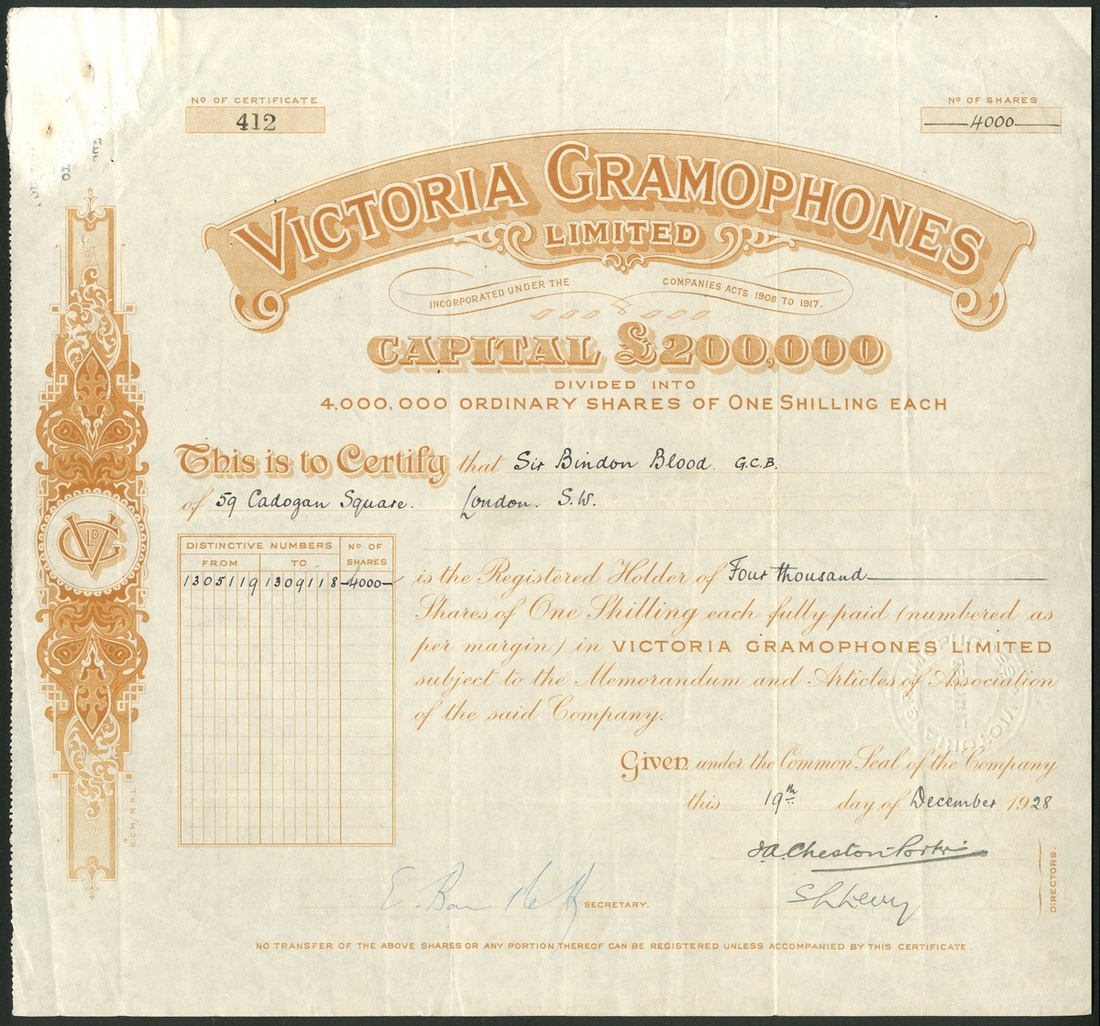 Nº OF CERTIFICATE
412
Nº OF SHARES
4000
VICTORIA GRAMOPHONES
LIMITED
INCORPORATED UNDER THE COMPANIES ACTS 1908 TO 1917.
CAPITAL £200,000
DIVIDED INTO
4,000,000 ORDINARY SHARES OF ONE SHILLING EACH
This is to Certify that Sir Bindon Blood. G.C.B.
of 59 Cadogan Square. London. S.W.
DISTINCTIVE NUMBERS Nº OF SHARES
FROM TO
1305119 1309118 4000
is the Registered Holder of Four thousand
Shares of One Shilling each fully paid (numbered as
per margin) in VICTORIA GRAMOPHONES LIMITED
subject to the Memorandum and Articles of Association
of the said Company.
Given under the Common Seal of the Company
this 19th day of December 1928
SECRETARY.
DIRECTORS.
NO TRANSFER OF THE ABOVE SHARES OR ANY PORTION THEREOF CAN BE REGISTERED UNLESS ACCOMPANIED BY THIS CERTIFICATE.